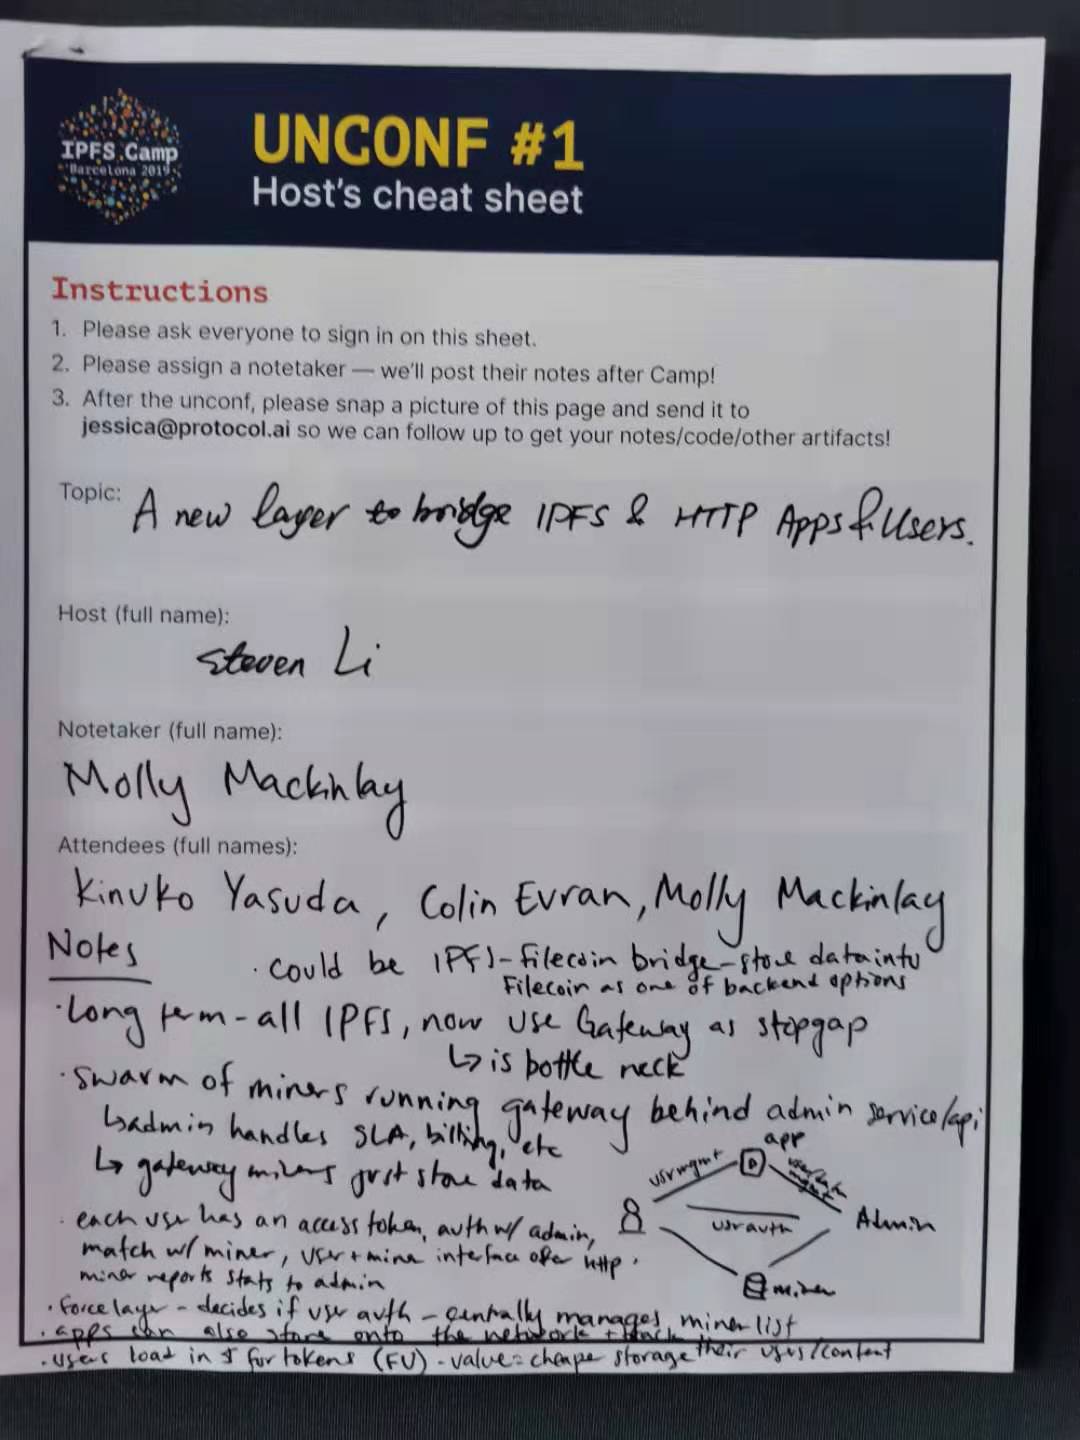 IPFS Camp
Barcelona 2019
UNCONF #1
Host's cheat sheet
Instructions
1. Please ask everyone to sign in on this sheet.
2. Please assign a notetaker — we'll post their notes after Camp!
3. After the unconf, please snap a picture of this page and send it to
jessica@protocol.ai so we can follow up to get your notes/code/other artifacts!
Topic: A new layer to bridge IPFS & HTTP Apps & Users.
Host (full name):
Steven Li
Notetaker (full name):
Molly Mackinlay
Attendees (full names):
Kinuko Yasuda, Colin Evran, Molly Mackinlay
Notes
· could be IPFS-Filecoin bridge - store data into
Filecoin as one of backend options
· Long term - all IPFS, now use Gateway as stopgap
↳ is bottle neck
· swarm of miners running gateway behind admin service/api
↳ admin handles SLA, billing, etc
↳ gateway miners just store data
app
usr mgmt
usr auth
Admin
miner
· each user has an access token, auth w/ admin,
match w/ miner, user + miner interface over http.
miner reports stats to admin
· Force layer - decides if user auth - centrally manages miner list
· apps can also store onto the network + track their users/content
· users load in $ for tokens (FU) - value = cheaper storage